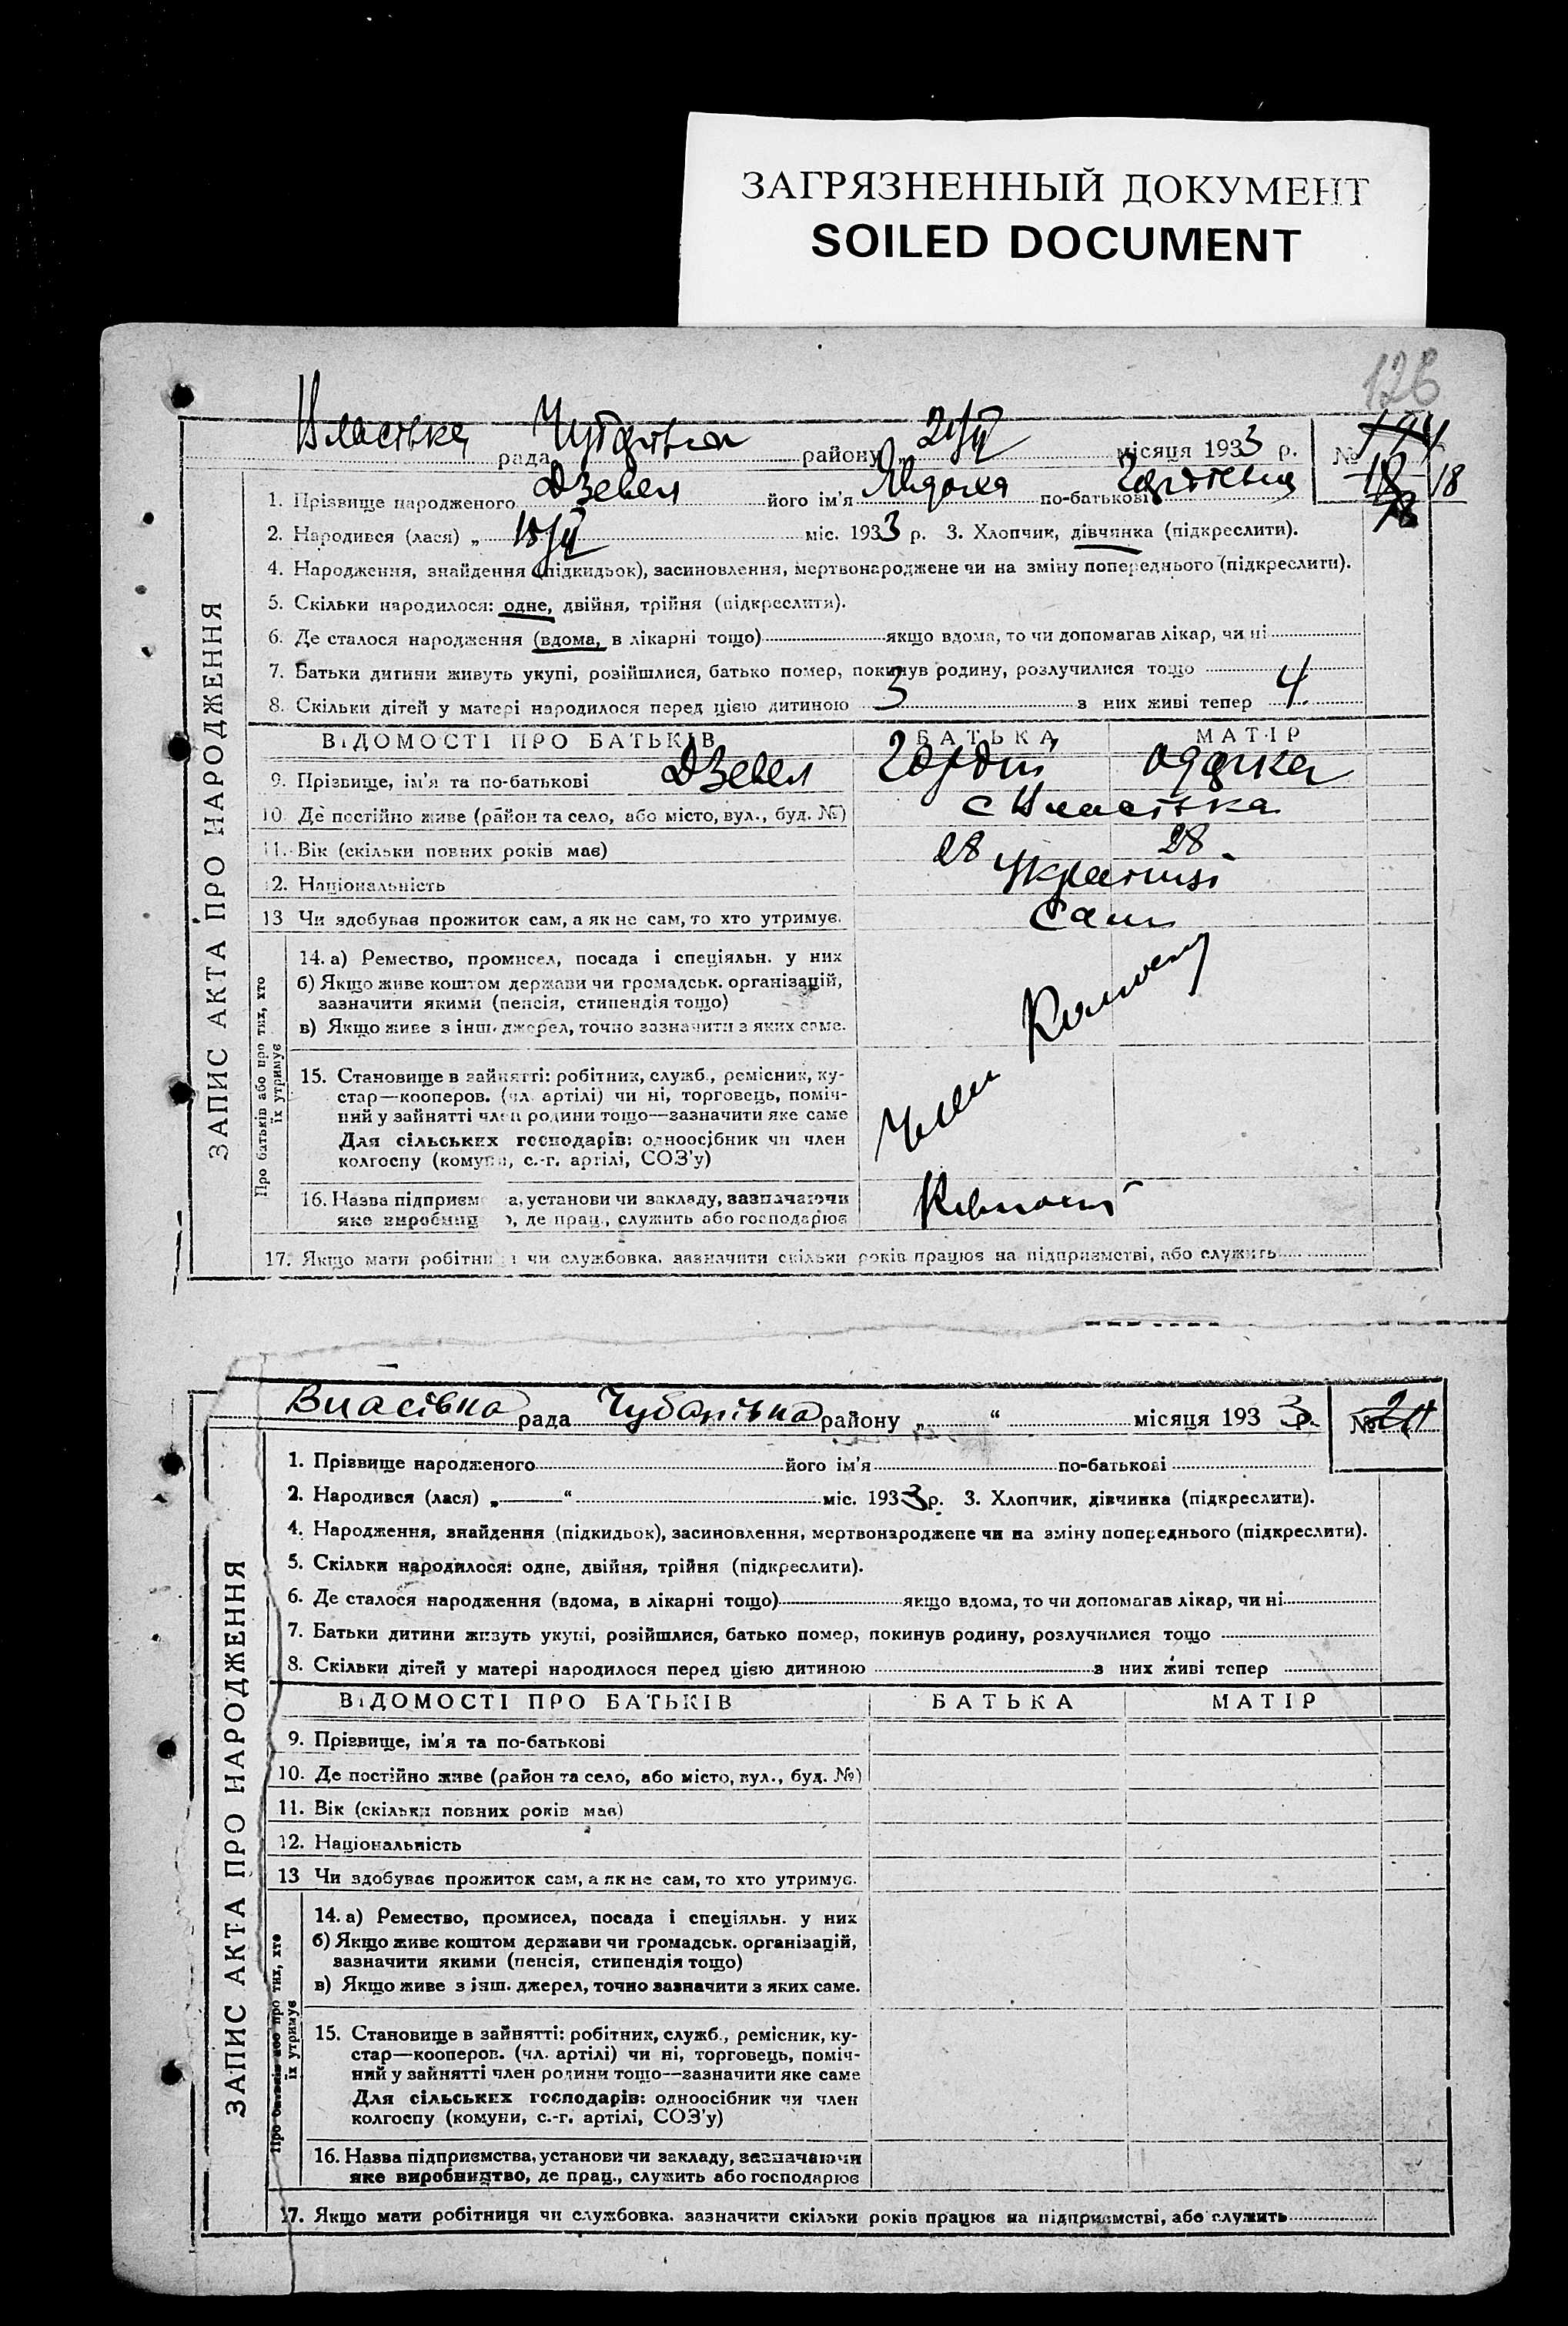 ЗАГРЯЗНЕННЫЙ ДОКУМЕНТ
SOILED DOCUMENT
126
Власівка рада Чубарівка району „ 20/ІІ місяця 1933 р. №
18
ЗАПИС АКТА ПРО НАРОДЖЕННЯ
1. Прізвище народженого Дзевел його ім'я Явдоха по-батькові Гордіевна
2. Народився (лася) „ 18/ІІ міс. 1933 р. 3. Хлопчик, дівчинка (підкреслити).
4. Народження, знайдення (підкидьок), засиновлення, мертвонароджене чи на зміну попереднього (підкреслити).
5. Скільки народилося: одне, двійня, трійня (підкреслити).
6. Де сталося народження (вдома, в лікарні тощо) якщо вдома, то чи допомагав лікар, чи ні
7. Батьки дитини живуть укупі, розійшлися, батько помер, покинув родину, розлучилися тощо
8. Скільки дітей у матері народилося перед цією дитиною 3 з них живі тепер 4
ВІДОМОСТІ ПРО БАТЬКІВ БАТЬКА МАТІР
9. Прізвище, ім'я та по-батькові Дзевел Гордій Одарка
10. Де постійно живе (район та село, або місто, вул., буд. №) с Власівка
11. Вік (скільки повних років має) 28 28
12. Національність Українці
13 Чи здобував прожиток сам, а як не сам, то хто утримує. Сами
Про батьків або про тих, хто
їх утримує
14. а) Ремество, промисел, посада і спеціяльн. у них
б) Якщо живе коштом держави чи громадськ. організацій,
зазначити якими (пенсія, стипендія тощо)
в) Якщо живе з інш. джерел, точно зазначити з яких саме.
15. Становище в зайнятті: робітник, служб., ремісник, ку-
стар—кооперов. (чл. артілі) чи ні, торговець, поміч-
ний у зайнятті член родини тощо—зазначити яке саме
Для сільських господарів: одноосібник чи член
колгоспу (комуни, с.-г. артілі, СОЗ'у)
Член
16. Назва підприєм а, установи чи закладу, зазначаючи
яке виробниц о, де прац., служить або господарює
17. Якщо мати робітни я чи службовка, зазначити скільки років працює на підприємстві, або служить
Власівка рада Чубарівка району „ “ місяця 1933 р. №
ЗАПИС АКТА ПРО НАРОДЖЕННЯ
1. Прізвище народженого його ім'я по-батькові
2. Народився (лася) „ “ міс. 1933 р. 3. Хлопчик, дівчинка (підкреслити).
4. Народження, знайдення (підкидьок), засиновлення, мертвонароджене чи на зміну попереднього (підкреслити).
5. Скільки народилося: одне, двійня, трійня (підкреслити).
6. Де сталося народження (вдома, в лікарні тощо) якщо вдома, то чи допомагав лікар, чи ні
7. Батьки дитини живуть укупі, розійшлися, батько помер, покинув родину, розлучилися тощо
8. Скільки дітей у матері народилося перед цією дитиною з них живі тепер
ВІДОМОСТІ ПРО БАТЬКІВ БАТЬКА МАТІР
9. Прізвище, ім'я та по-батькові
10. Де постійно живе (район та село, або місто, вул., буд. №)
11. Вік (скільки повних років має)
12. Національність
13 Чи здобував прожиток сам, а як не сам, то хто утримує.
Про батьків або про тих, хто
їх утримує
14. а) Ремество, промисел, посада і спеціяльн. у них
б) Якщо живе коштом держави чи громадськ. організацій,
зазначити якими (пенсія, стипендія тощо)
в) Якщо живе з інш. джерел, точно зазначити з яких саме.
15. Становище в зайнятті: робітник, служб., ремісник, ку-
стар—кооперов. (чл. артілі) чи ні, торговець, поміч-
ний у зайнятті член родини тощо—зазначити яке саме
Для сільських господарів: одноосібник чи член
колгоспу (комуни, с.-г. артілі, СОЗ'у)
16. Назва підприємства, установи чи закладу, зазначаючи
яке виробництво, де прац., служить або господарює
17. Якщо мати робітниця чи службовка, зазначити скільки років працює на підприємстві, або служить